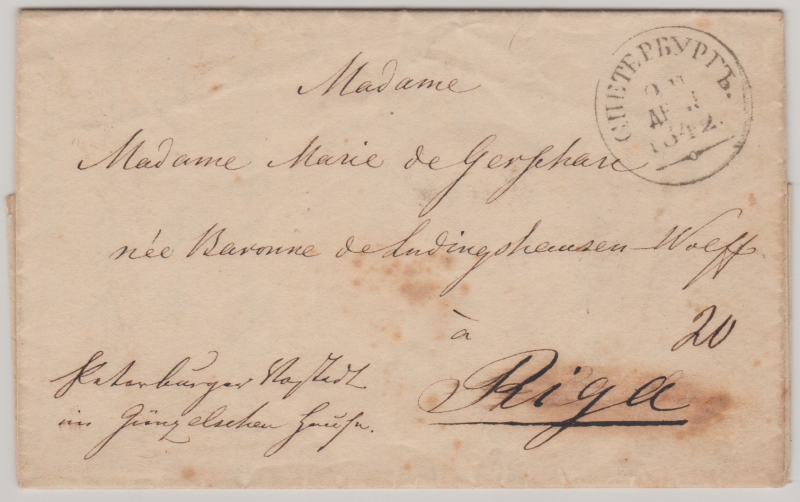 С.ПЕТЕРБУРГЪ.
1842.
Madame
Madame Marie de
née Baronne de Ludingshausen-Wolff
à
20
Riga
Peterburger Vorstadt
im Günzelschen Hause.